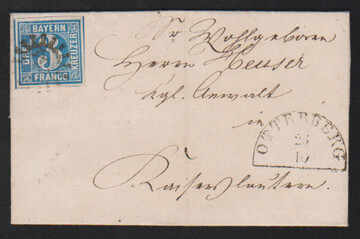 BAYERN
DREI
KREUZER
FRANCO
Sr. Wohlgeboren
Herrn Heuser
kgl. Anwalt
in
OTTERBERG
23
10
Kaiserslautern.